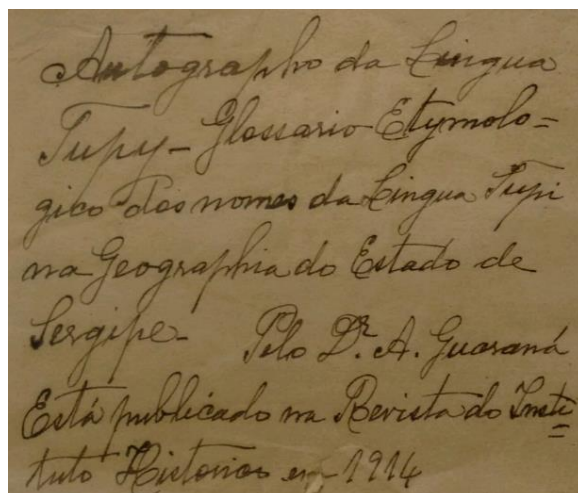 Autographo da Lingua
Tupy - Glossario Etymolo=
gico dos nomes da Lingua Tupi
na Geographia do Estado de
Sergipe - Pelo Dr. A. Guaraná
Está publicado na Revista do Insti=
tuto Historico em 1914